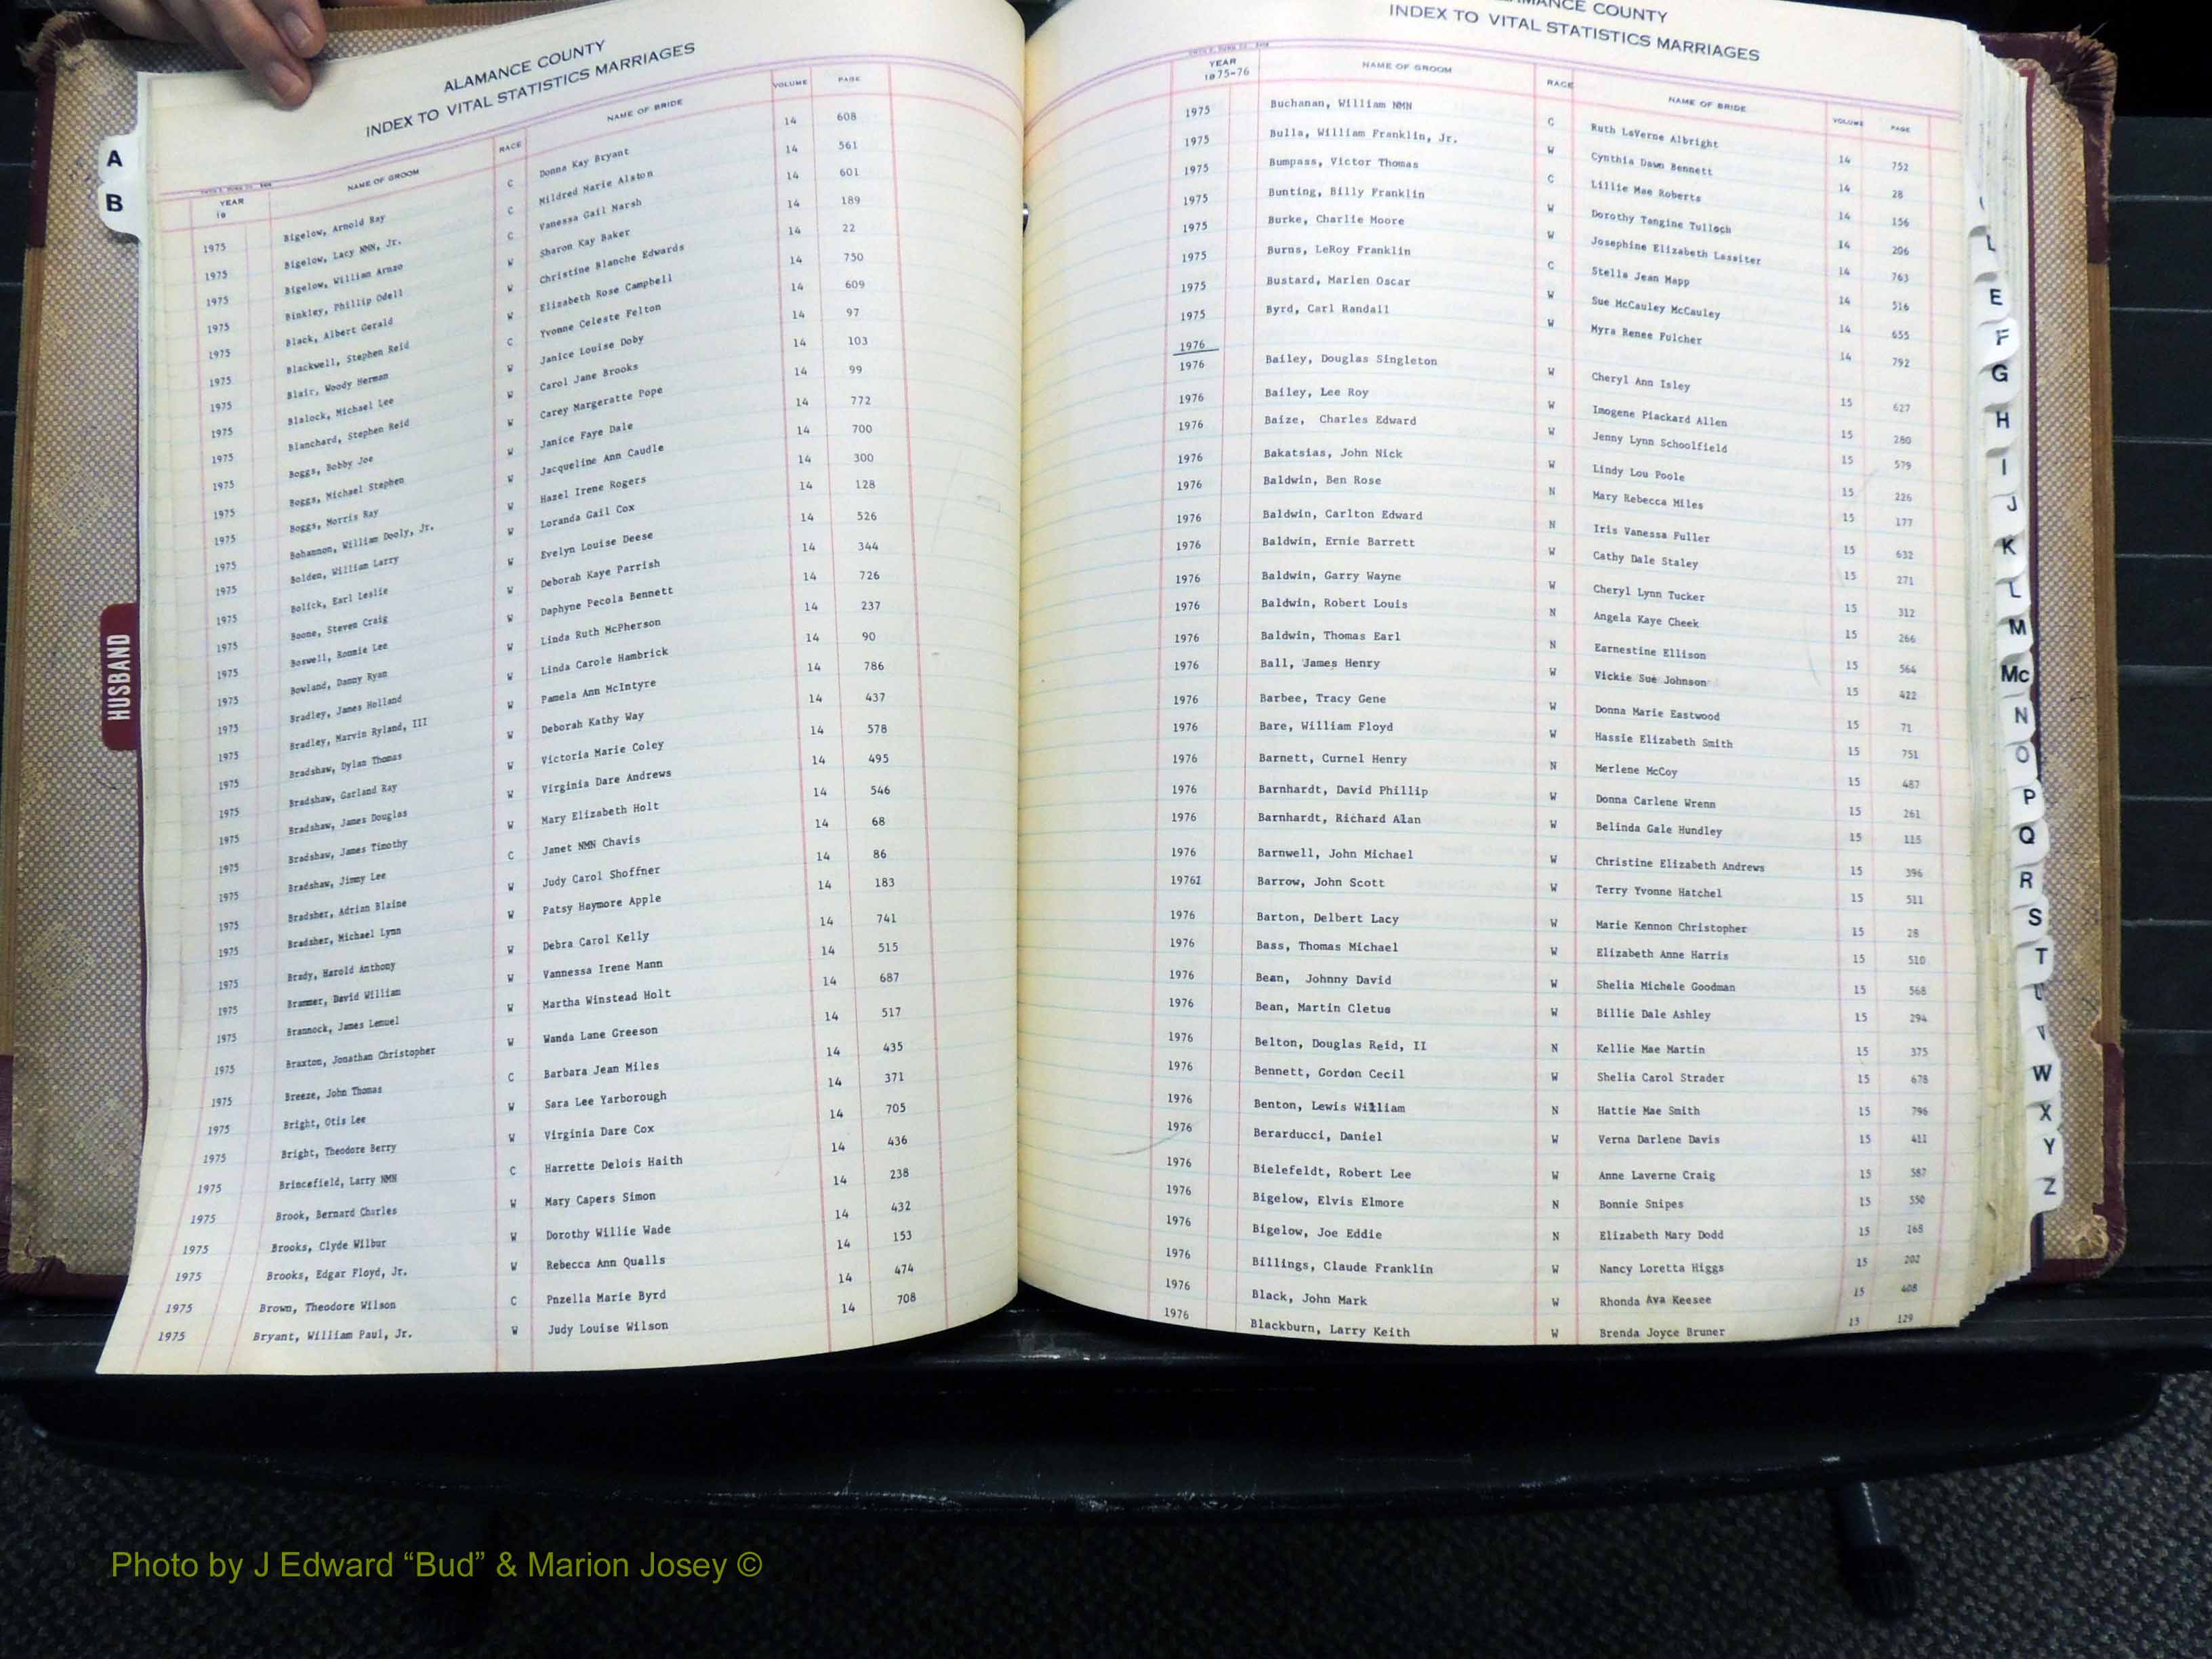 ALAMANCE COUNTY
INDEX TO VITAL STATISTICS MARRIAGES
YEAR 19 NAME OF GROOM RACE NAME OF BRIDE VOLUME PAGE
1975 Bigelow, Arnold Ray C Donna Kay Bryant 14 608
1975 Bigelow, Lacy NMN, Jr. C Mildred Marie Alston 14 561
1975 Bigelow, William Arnzo C Vanessa Gail Marsh 14 601
1975 Binkley, Phillip Odell W Sharon Kay Baker 14 189
1975 Black, Albert Gerald W Christine Blanche Edwards 14 22
1975 Blackwell, Stephen Reid W Elizabeth Rose Campbell 14 750
1975 Blair, Woody Herman C Yvonne Celeste Felton 14 609
1975 Blalock, Michael Lee W Janice Louise Doby 14 97
1975 Blanchard, Stephen Reid W Carol Jane Brooks 14 103
1975 Boggs, Bobby Joe W Carey Margeratte Pope 14 99
1975 Boggs, Michael Stephen W Janice Faye Dale 14 772
1975 Boggs, Morris Ray W Jacqueline Ann Caudle 14 700
1975 Bohannon, William Dooly, Jr. W Hazel Irene Rogers 14 300
1975 Bolden, William Larry W Loranda Gail Cox 14 128
1975 Bolick, Earl Leslie W Evelyn Louise Deese 14 526
1975 Boone, Steven Craig W Deborah Kaye Parrish 14 344
1975 Boswell, Ronnie Lee W Daphyne Pecola Bennett 14 726
1975 Bowland, Danny Ryan W Linda Ruth McPherson 14 237
1975 Bradley, James Holland W Linda Carole Hambrick 14 90
1975 Bradley, Marvin Ryland, III W Pamela Ann McIntyre 14 786
1975 Bradshaw, Dylan Thomas W Deborah Kathy Way 14 437
1975 Bradshaw, Garland Ray W Victoria Marie Coley 14 578
1975 Bradshaw, James Douglas W Virginia Dare Andrews 14 495
1975 Bradshaw, James Timothy W Mary Elizabeth Holt 14 546
1975 Bradshaw, Jimmy Lee C Janet NMN Chavis 14 68
1975 Bradsher, Adrian Blaine W Judy Carol Shoffner 14 86
1975 Bradsher, Michael Lynn W Patsy Haymore Apple 14 183
1975 Brady, Harold Anthony W Debra Carol Kelly 14 741
1975 Brammer, David William W Vannessa Irene Mann 14 515
1975 Brannock, James Lemuel W Martha Winstead Holt 14 687
1975 Braxton, Jonathan Christopher W Wanda Lane Greeson 14 517
1975 Breeze, John Thomas C Barbara Jean Miles 14 435
1975 Bright, Otis Lee W Sara Lee Yarborough 14 371
1975 Bright, Theodore Berry W Virginia Dare Cox 14 705
1975 Brincefield, Larry NMN C Harrette Delois Haith 14 436
1975 Brook, Bernard Charles W Mary Capers Simon 14 238
1975 Brooks, Clyde Wilbur W Dorothy Willie Wade 14 432
1975 Brooks, Edgar Floyd, Jr. W Rebecca Ann Qualls 14 153
1975 Brown, Theodore Wilson C Pnzella Marie Byrd 14 474
1975 Bryant, William Paul, Jr. W Judy Louise Wilson 14 708
A
B
HUSBAND
AMANCE COUNTY
INDEX TO VITAL STATISTICS MARRIAGES
YEAR 1975-76 NAME OF GROOM RACE NAME OF BRIDE VOLUME PAGE
1975 Buchanan, William NMN C Ruth LaVerne Albright 14 752
1975 Bulla, William Franklin, Jr. W Cynthia Dawn Bennett 14 28
1975 Bumpass, Victor Thomas C Lillie Mae Roberts 14 156
1975 Bunting, Billy Franklin W Dorothy Tangine Tulloch 14 206
1975 Burke, Charlie Moore W Josephine Elizabeth Lassiter 14 763
1975 Burns, LeRoy Franklin C Stella Jean Mapp 14 516
1975 Bustard, Marlen Oscar W Sue McCauley McCauley 14 655
1975 Byrd, Carl Randall W Myra Renee Fulcher 14 792
1976
1976 Bailey, Douglas Singleton W Cheryl Ann Isley 15 627
1976 Bailey, Lee Roy W Imogene Piackard Allen 15 280
1976 Baize, Charles Edward W Jenny Lynn Schoolfield 15 579
1976 Bakatsias, John Nick W Lindy Lou Poole 15 226
1976 Baldwin, Ben Rose N Mary Rebecca Miles 15 177
1976 Baldwin, Carlton Edward N Iris Vanessa Fuller 15 632
1976 Baldwin, Ernie Barrett W Cathy Dale Staley 15 271
1976 Baldwin, Garry Wayne W Cheryl Lynn Tucker 15 312
1976 Baldwin, Robert Louis N Angela Kaye Cheek 15 266
1976 Baldwin, Thomas Earl N Earnestine Ellison 15 564
1976 Ball, James Henry W Vickie Sue Johnson 15 422
1976 Barbee, Tracy Gene W Donna Marie Eastwood 15 71
1976 Bare, William Floyd W Hassie Elizabeth Smith 15 751
1976 Barnett, Curnel Henry N Merlene McCoy 15 487
1976 Barnhardt, David Phillip W Donna Carlene Wrenn 15 261
1976 Barnhardt, Richard Alan W Belinda Gale Hundley 15 115
1976 Barnwell, John Michael W Christine Elizabeth Andrews 15 396
19761 Barrow, John Scott W Terry Yvonne Hatchel 15 511
1976 Barton, Delbert Lacy W Marie Kennon Christopher 15 28
1976 Bass, Thomas Michael W Elizabeth Anne Harris 15 510
1976 Bean, Johnny David W Shelia Michele Goodman 15 568
1976 Bean, Martin Cletus W Billie Dale Ashley 15 294
1976 Belton, Douglas Reid, II N Kellie Mae Martin 15 375
1976 Bennett, Gordon Cecil W Shelia Carol Strader 15 678
1976 Benton, Lewis William N Hattie Mae Smith 15 796
1976 Berarducci, Daniel W Verna Darlene Davis 15 411
1976 Bielefeldt, Robert Lee W Anne Laverne Craig 15 587
1976 Bigelow, Elvis Elmore N Bonnie Snipes 15 550
1976 Bigelow, Joe Eddie N Elizabeth Mary Dodd 15 168
1976 Billings, Claude Franklin W Nancy Loretta Higgs 15 202
1976 Black, John Mark W Rhonda Ava Keesee 15 408
1976 Blackburn, Larry Keith W Brenda Joyce Bruner 15 129
E
F
G
H
I
J
K
L
M
Mc
N
O
P
Q
R
S
T
U
V
W
X
Y
Z
Photo by J Edward “Bud” & Marion Josey ©